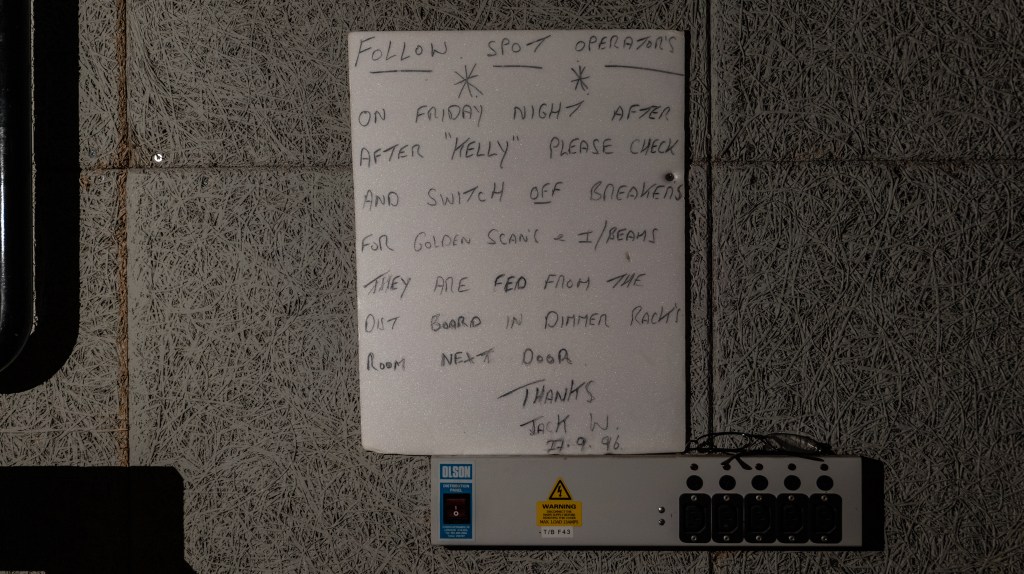 FOLLOW SPOT OPERATOR'S
ON FRIDAY NIGHT AFTER
AFTER "KELLY" PLEASE CHECK
AND SWITCH OFF BREAKERS
FOR GOLDEN SCAN'S & I/BEAMS
THEY ARE FED FROM THE
DIST BOARD IN DIMMER RACK'S
ROOM NEXT DOOR
THANKS
JACK W.
27.9.96
OLSON
WARNING
T/B F43